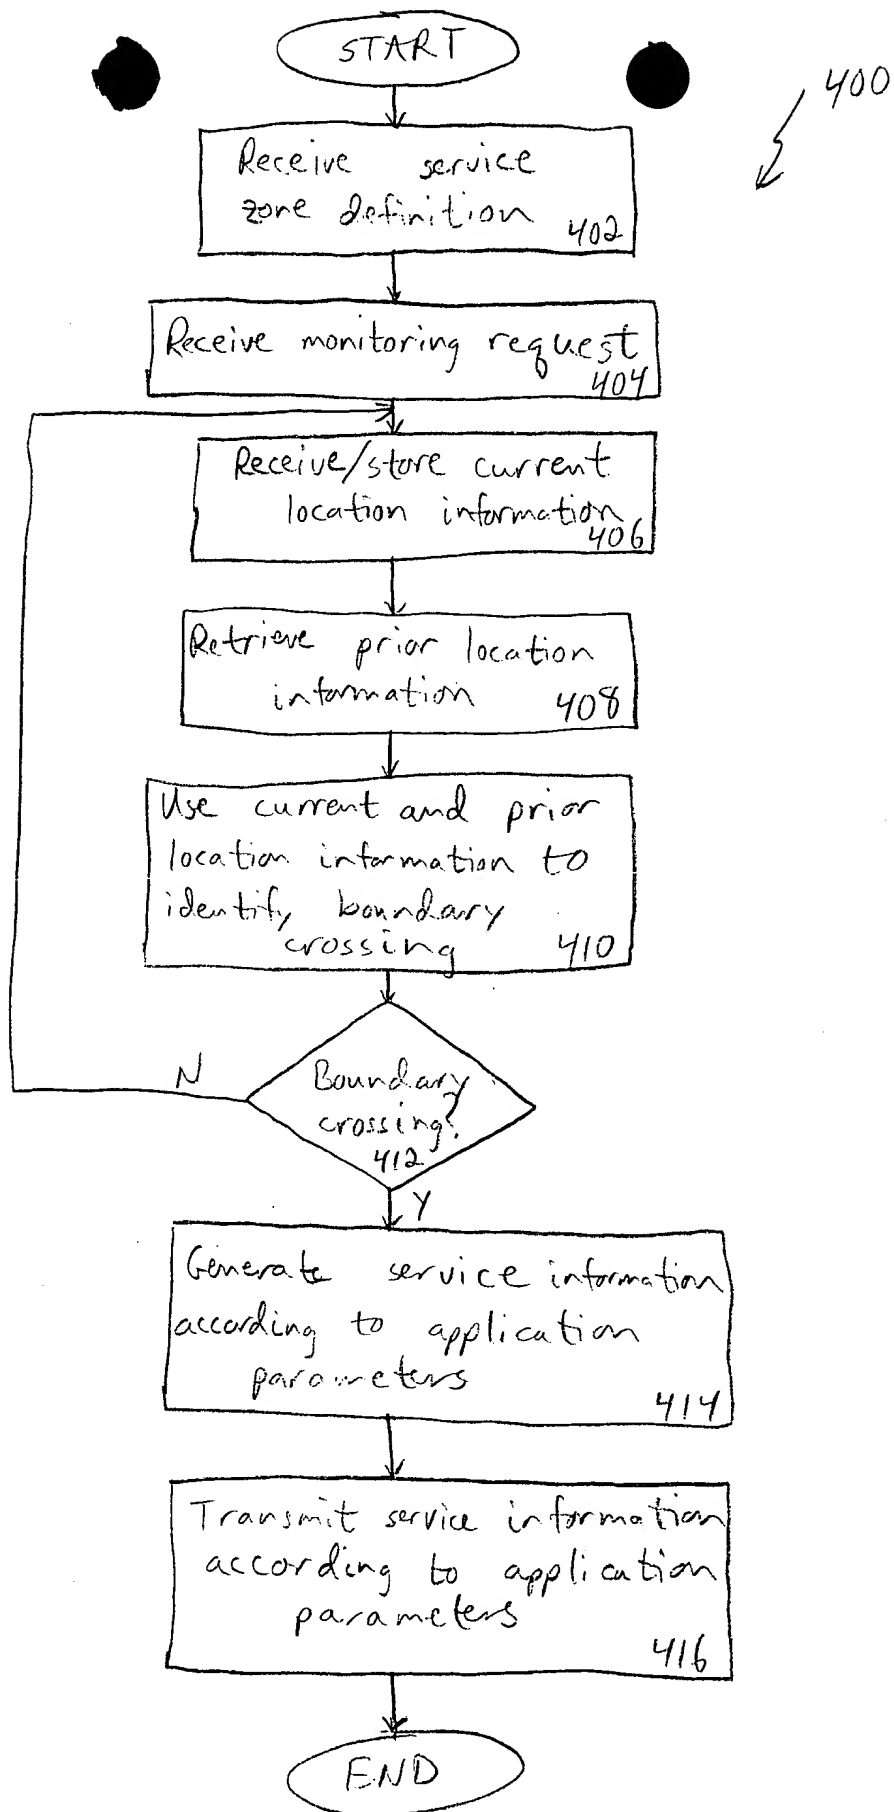 START
400
Receive service
zone definition
402
Receive monitoring request
404
Receive/store current
location information
406
Retrieve prior location
information
408
Use current and prior
location information to
identify boundary
crossing
410
Boundary
crossing?
412
N
Y
Generate service information
according to application
parameters
414
Transmit service information
according to application
parameters
416
END